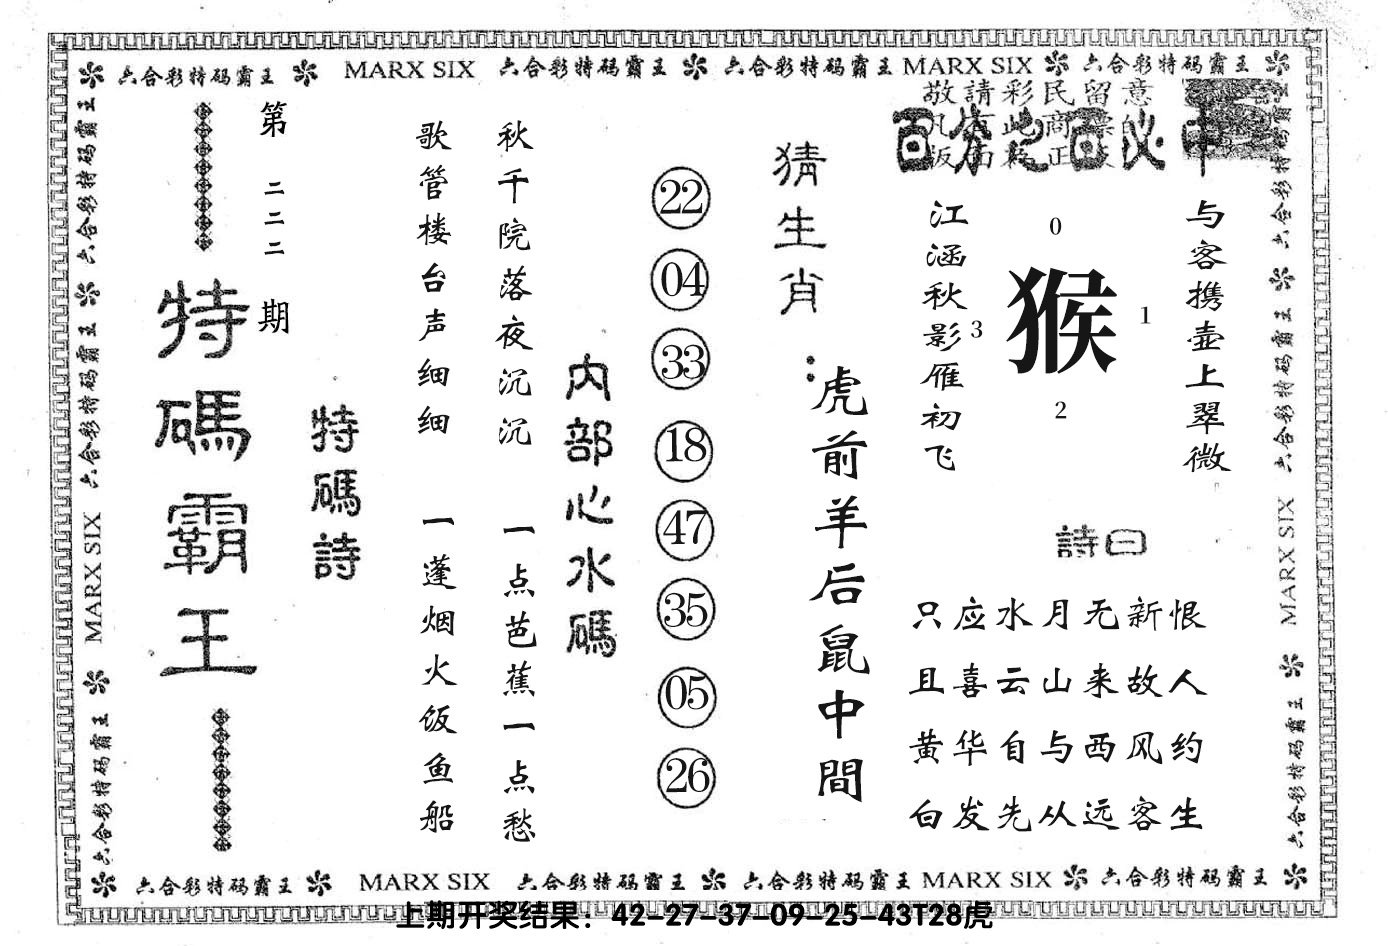 六合彩特码霸王 MARX SIX 六合彩特码霸王 六合彩特码霸王 MARX SIX 六合彩特码霸王
六合彩特码霸王
六合彩特码霸王
MARX SIX
六合彩特码霸王
第二二二期
特碼霸王
特碼詩
歌管楼台声细细 一蓬烟火饭鱼船
秋千院落夜沉沉 一点芭蕉一点愁
内部心水碼
22
04
33
18
47
35
05
26
猜生肖:
虎前羊后鼠中間
敬請彩民留意
百分之百必中
与客携壶上翠微
江涵秋影雁初飞
0
3
猴
1
2
詩曰
只应水月无新恨
且喜云山来故人
黄华自与西风约
白发先从远客生
六合彩特码霸王
六合彩特码霸王
MARX SIX
六合彩特码霸王
六合彩特码霸王 MARX SIX 六合彩特码霸王 六合彩特码霸王 MARX SIX 六合彩特码霸王
上期开奖结果：42-27-37-09-25-43T28虎